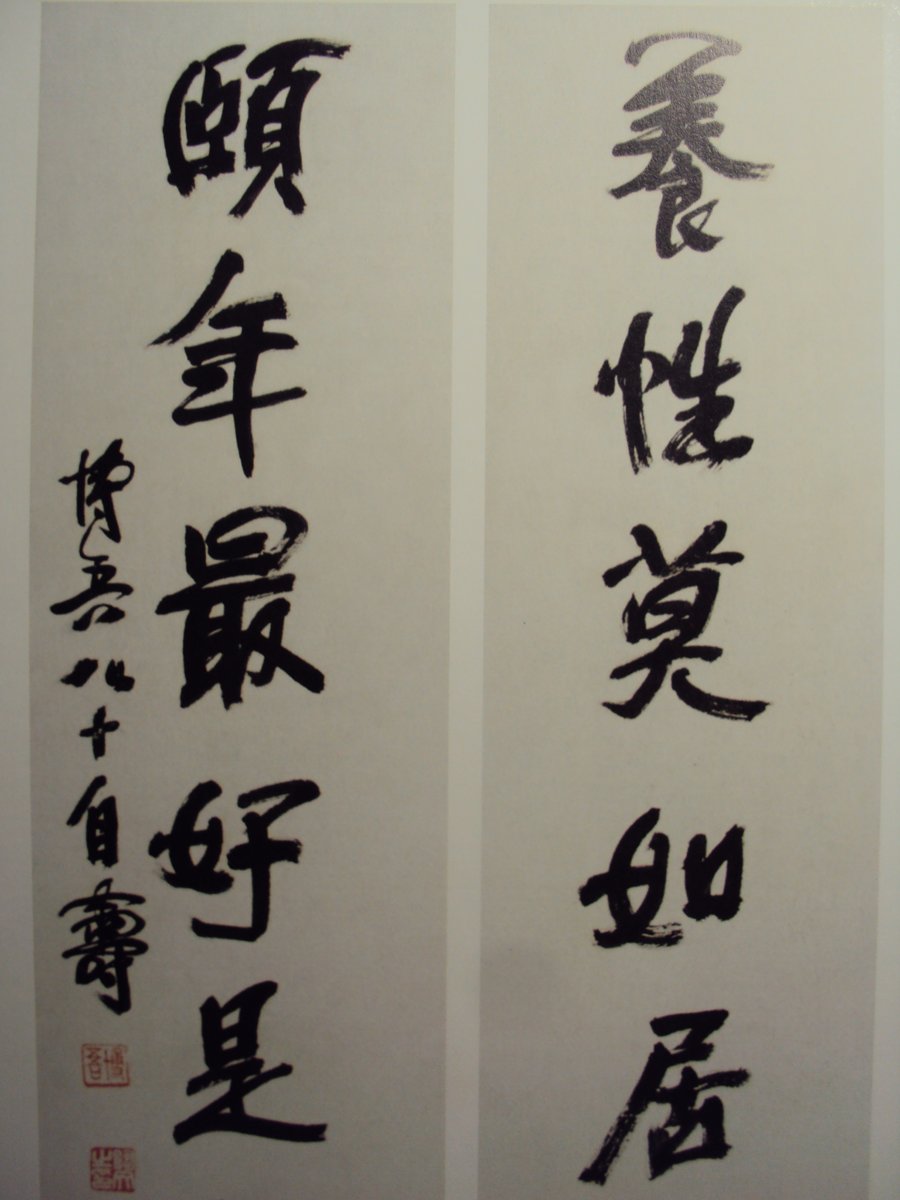 養性莫如居
頤年最好是
博吾八十自壽
博吾